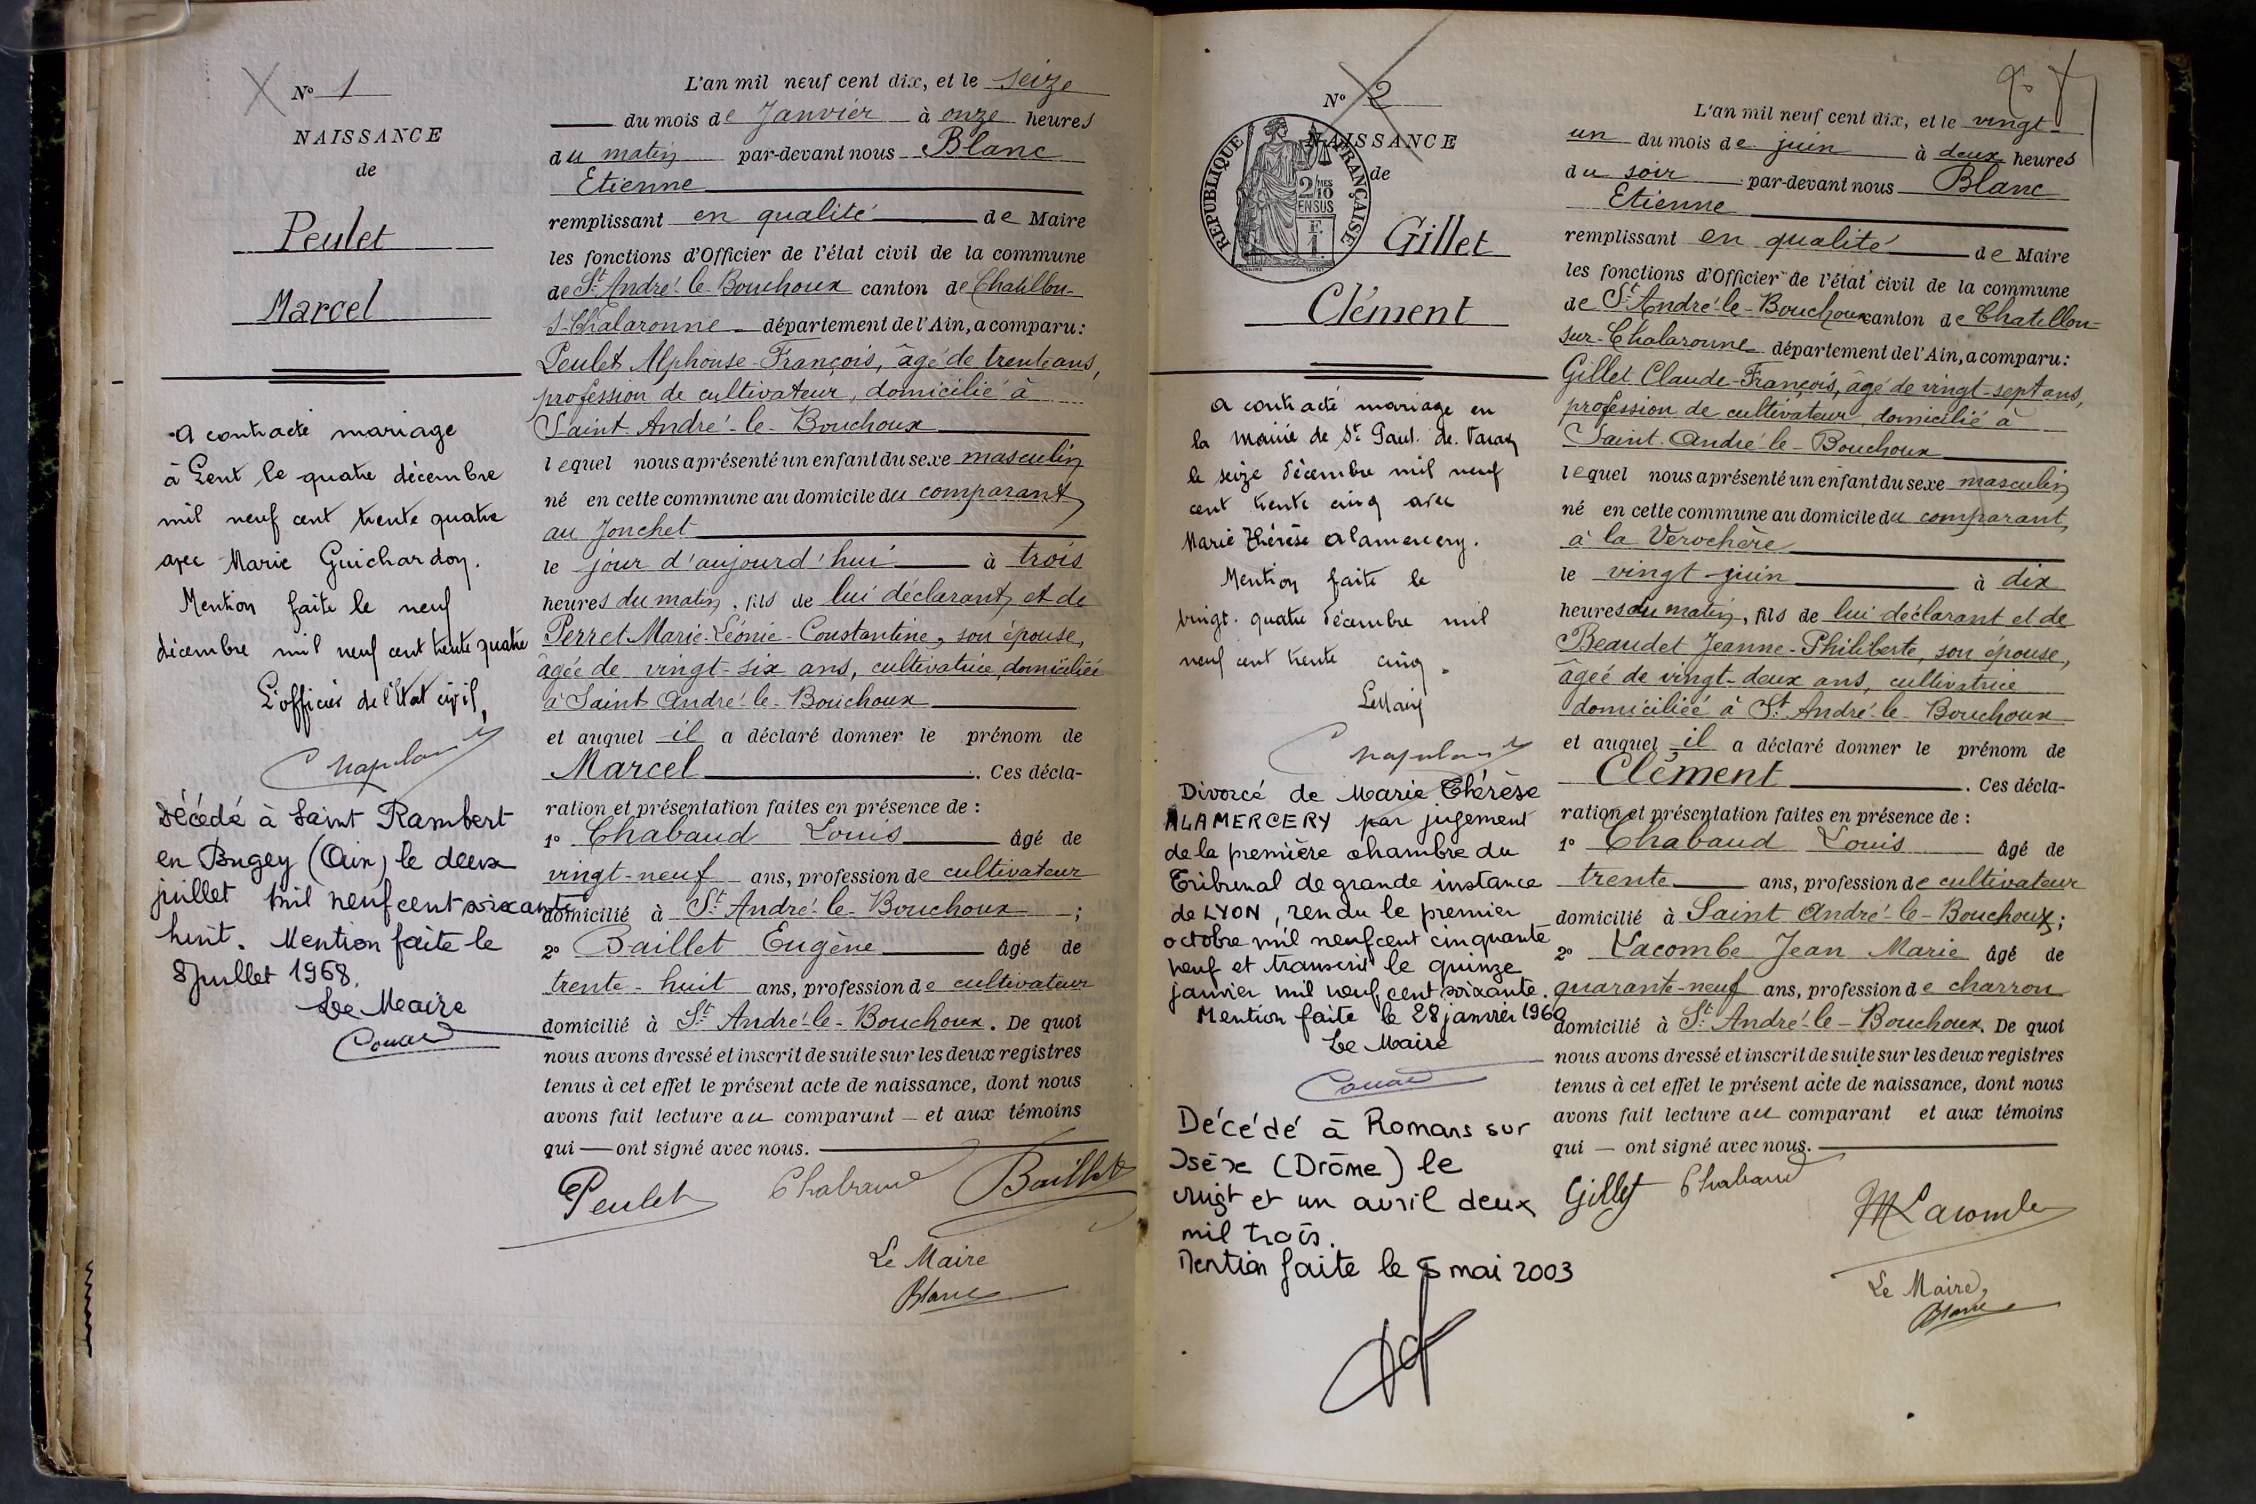 N° 1
NAISSANCE
de
Peulet
Marcel
A contracté mariage
à Lent le quatre décembre
mil neuf cent trente quatre
avec Marie Guichardon.
Mention faite le neuf
décembre mil neuf cent trente quatre
L'officier de l'Etat civil,
Décédé à Saint Rambert
en Bugey (Ain) le deux
juillet mil neuf cent soixante
huit. Mention faite le
8 Juillet 1968.
Le Maire
L'an mil neuf cent dix, et le seize
du mois de Janvier à onze heures
du matin par-devant nous Blanc
Etienne
remplissant en qualité de Maire
les fonctions d'Officier de l'état civil de la commune
de St André-le-Bouchoux canton de Chatillon-
s-Chalaronne département de l'Ain, a comparu:
Peulet Alphonse-François, âgé de trente ans,
profession de cultivateur, domicilié à
Saint-André-le-Bouchoux
lequel nous a présenté un enfant du sexe masculin
né en cette commune au domicile du comparant,
au Jonchet
le jour d'aujourd'hui à trois
heures du matin, fils de lui déclarant, et de
Perret Marie-Léonie-Constantine, son épouse,
âgée de vingt-six ans, cultivatrice, domiciliée
à Saint André-le-Bouchoux
et auquel il a déclaré donner le prénom de
Marcel . Ces décla-
ration et présentation faites en présence de :
1° Chabaud Louis âgé de
vingt-neuf ans, profession de cultivateur
domicilié à St André-le-Bouchoux ;
2° Baillet Eugène âgé de
trente-huit ans, profession de cultivateur
domicilié à St André-le-Bouchoux. De quoi
nous avons dressé et inscrit de suite sur les deux registres
tenus à cet effet le présent acte de naissance, dont nous
avons fait lecture au comparant — et aux témoins
qui — ont signé avec nous.
Peulet Chabaud Baillet
Le Maire
Blanc
N° 2
NAISSANCE
de
REPUBLIQUE FRANÇAISE
2/10 MES
EN SUS
F.
1
Gillet
Clément
a contracté mariage en
la mairie de St Paul de Varax
le seize décembre mil neuf
cent trente cinq avec
Marie Thérèse Alamercery.
Mention faite le
vingt-quatre décembre mil
neuf cent trente cinq.
Le Maire
Divorcé de Marie Thérèse
ALAMERCERY par jugement
de la première chambre du
Tribunal de grande instance
de LYON, rendu le premier
octobre mil neuf cent cinquante
neuf et transcrit le quinze
janvier mil neuf cent soixante.
Mention faite le 28 janvier 1960
Le Maire
Décédé à Romans sur
Isère (Drôme) le
vingt et un avril deux
mil trois.
Mention faite le 5 mai 2003
L'an mil neuf cent dix, et le vingt-
un du mois de juin à deux heures
du soir par-devant nous Blanc
Etienne
remplissant en qualité de Maire
les fonctions d'Officier de l'état civil de la commune
de St André-le-Bouchoux canton de Chatillon-
sur-Chalaronne département de l'Ain, a comparu:
Gillet Claude-François, âgé de vingt-sept ans,
profession de cultivateur, domicilié à
Saint-André-le-Bouchoux
lequel nous a présenté un enfant du sexe masculin
né en cette commune au domicile du comparant,
à la Verochère
le vingt juin à dix
heures du matin, fils de lui déclarant et de
Beaudet Jeanne-Philiberte, son épouse,
âgée de vingt-deux ans, cultivatrice
domiciliée à St André-le-Bouchoux
et auquel il a déclaré donner le prénom de
Clément . Ces décla-
ration et présentation faites en présence de :
1° Chabaud Louis âgé de
trente ans, profession de cultivateur
domicilié à Saint André-le-Bouchoux;
2° Lacombe Jean Marie âgé de
quarante-neuf ans, profession de charron
domicilié à St André-le-Bouchoux. De quoi
nous avons dressé et inscrit de suite sur les deux registres
tenus à cet effet le présent acte de naissance, dont nous
avons fait lecture au comparant et aux témoins
qui — ont signé avec nous.
Gillet Chabaud
Lacombe
Le Maire,
Blanc